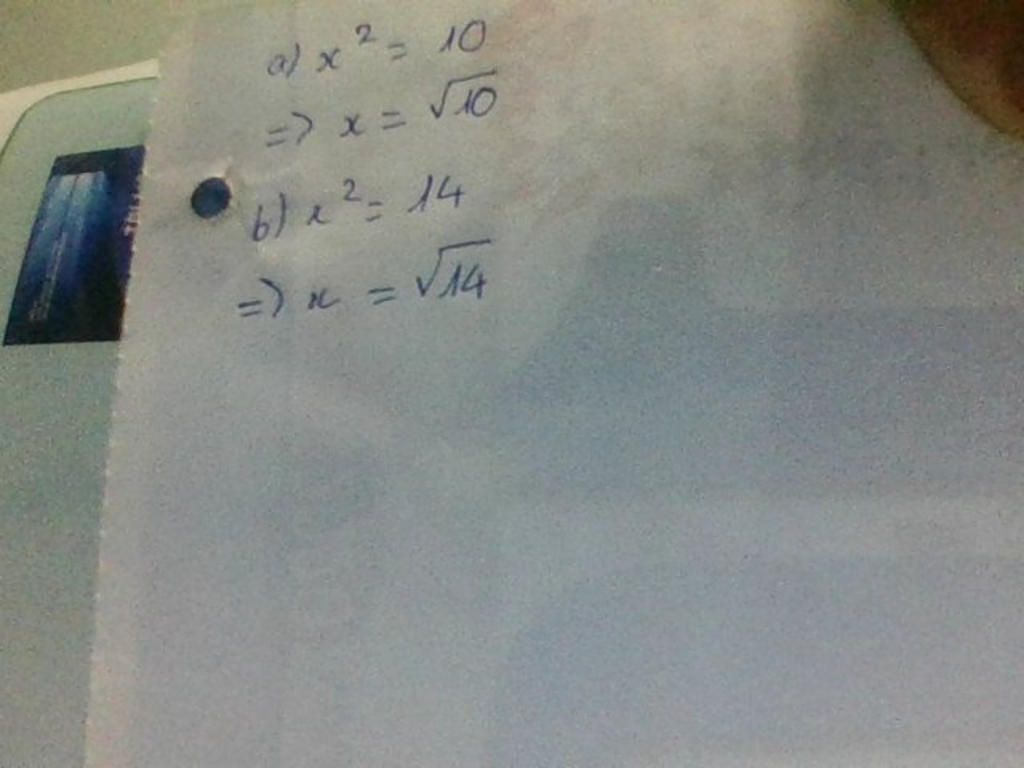 a) x² = 10
=> x = √10
b) x² = 14
=> x = √14